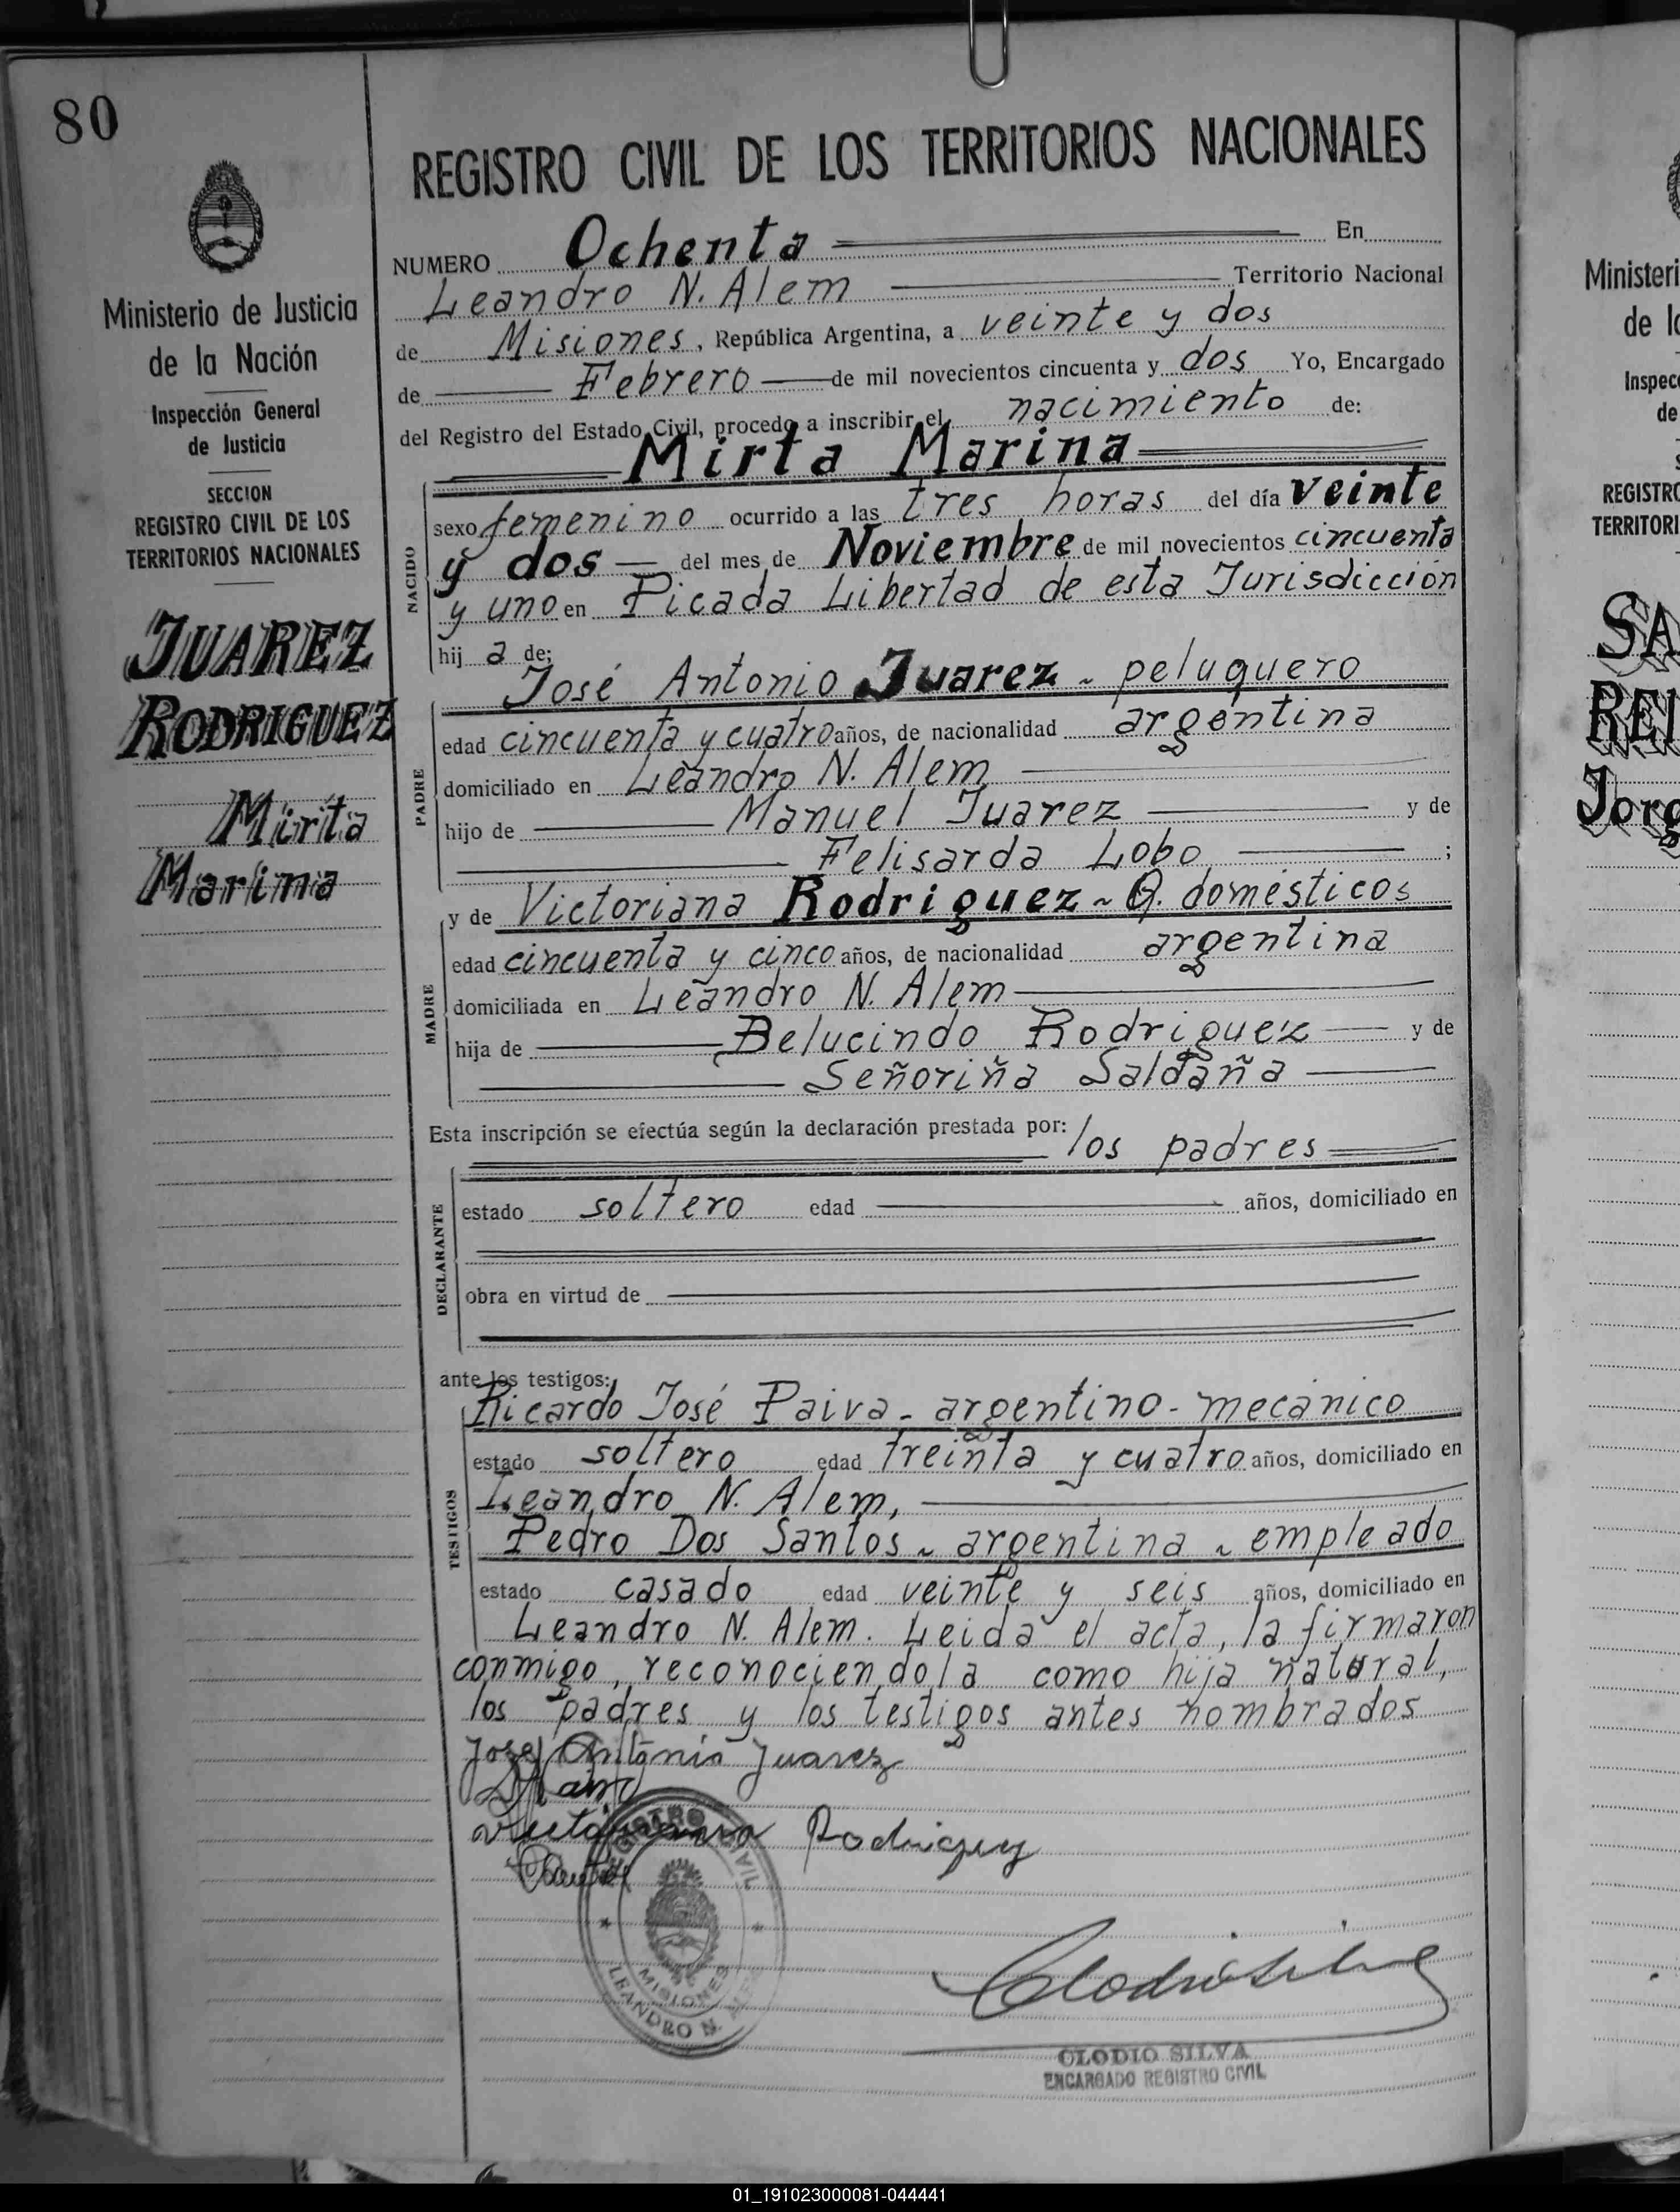 80
REGISTRO CIVIL DE LOS TERRITORIOS NACIONALES
Ministerio de Justicia
de la Nación
Inspección General
de Justicia
SECCION
REGISTRO CIVIL DE LOS
TERRITORIOS NACIONALES
JUAREZ
RODRIGUEZ
Mirta
Marina
NUMERO Ochenta En
Leandro N. Alem Territorio Nacional
de Misiones, República Argentina, a veinte y dos
de Febrero de mil novecientos cincuenta y dos Yo, Encargado
del Registro del Estado Civil, procedo a inscribir el nacimiento de:
Mirta Marina
NACIDO
sexo femenino ocurrido a las tres horas del día veinte
y dos del mes de Noviembre de mil novecientos cincuenta
y uno en Picada Libertad de esta Jurisdicción
hij a de:
José Antonio Juarez - peluquero
PADRE
edad cincuenta y cuatro años, de nacionalidad argentina
domiciliado en Leandro N. Alem
hijo de Manuel Juarez y de
Felisarda Lobo ;
y de Victoriana Rodriguez - Q. domésticos
MADRE
edad cincuenta y cinco años, de nacionalidad argentina
domiciliada en Leandro N. Alem
hija de Belucindo Rodriguez y de
Señoriña Saldaña
Esta inscripción se efectúa según la declaración prestada por: los padres
DECLARANTE
estado soltero edad años, domiciliado en
obra en virtud de
ante los testigos:
Ricardo José Paiva - argentino - mecánico
TESTIGOS
estado soltero edad treinta y cuatro años, domiciliado en
Leandro N. Alem,
Pedro Dos Santos - argentina - empleado
estado casado edad veinte y seis años, domiciliado en
Leandro N. Alem. Leida el acta, la firmaron
conmigo, reconociendola como hija natural,
los padres y los testigos antes nombrados
José Antonio Juarez
Victoriana Rodriguez
REGISTRO CIVIL
MISIONES
LEANDRO N. ALEM
Clodio Silva
CLODIO SILVA
ENCARGADO REGISTRO CIVIL
Ministeri
de la
Inspec
de
REGISTRO
TERRITORI
SA
REI
Jorg
01_191023000081-044441